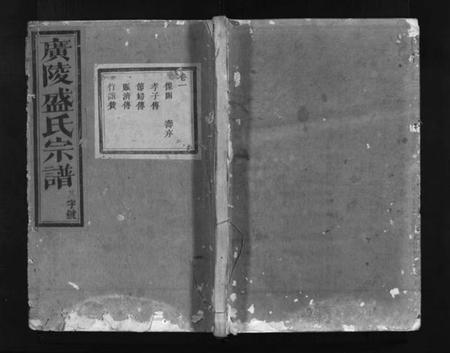 廣陵盛氏宗譜
字號
卷一
像圖 壽序
孝子傳
節婦傳
賑濟傳
行誼